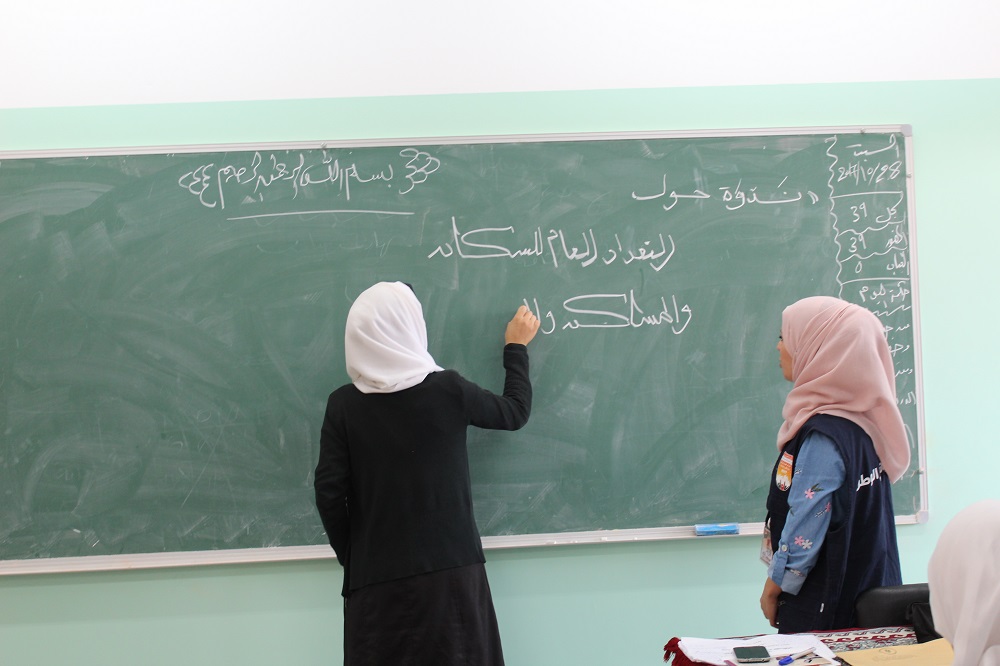 بسم الله الرحمن الرحيم
ندوة حول
التعداد العام للسكان
والمساكن وال
السبت
2017/10/28
كل 39
39
الغياب 0
حكمة اليوم